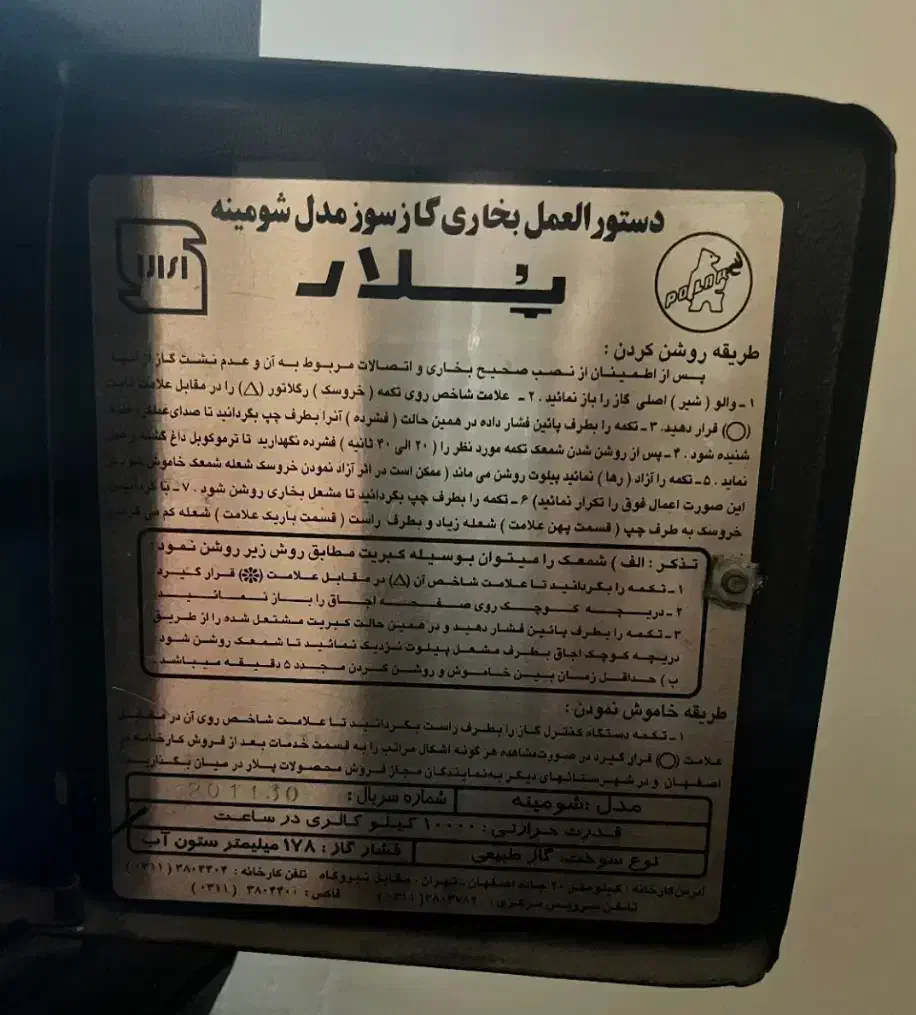 دستورالعمل بخاری گازسوز مدل شومینه
پلار
POLAR
طریقه روشن کردن :
پس از اطمینان از نصب صحیح بخاری و اتصالات مربوط به آن و عدم نشت گاز از آنها
۱ - والو ( شیر ) اصلی گاز را باز نمائید . ۲ - علامت شاخص روی تکمه ( خروسک ) رگلاتور (△) را در مقابل علامت ثابت
(◯) قرار دهید. ۳ - تکمه را بطرف پائین فشار داده در همین حالت ( فشرده ) آنرا بطرف چپ بگردانید تا صدای عملکرد
شنیده شود . ۴ - پس از روشن شدن شمعک تکمه مورد نظر را ( ۲۰ الی ۳۰ ثانیه ) فشرده نگهدارید تا ترموکوبل داغ گشته و عمل
نماید . ۵ - تکمه را آزاد ( رها ) نمائید پیلوت روشن می ماند ( ممکن است در اثر آزاد نمودن خروسک شعله شمعک خاموش شود در
این صورت اعمال فوق را تکرار نمائید) ۶ - تکمه را بطرف چپ بگردانید تا مشعل بخاری روشن شود . ۷ - با گردانیدن
خروسک به طرف چپ ( قسمت پهن علامت ) شعله زیاد و بطرف راست ( قسمت باریک علامت ) شعله کم می گردد
تذکر : الف ) شمعک را میتوان بوسیله کبریت مطابق روش زیر روشن نمود :
۱ - تکمه را بگردانید تا علامت شاخص آن (△) در مقابل علامت (✻) قرار گیرد
۲ - دریچه کوچک روی صفحه اجاق را باز نمائید
۳ - تکمه را بطرف پائین فشار دهید و در همین حالت کبریت مشتعل شده را از طریق
دریچه کوچک اجاق بطرف مشعل پیلوت نزدیک نمائید تا شمعک روشن شود
ب ) حداقل زمان بین خاموش و روشن کردن مجدد ۵ دقیقه میباشد .
طریقه خاموش نمودن :
۱ - تکمه دستگاه کنترل گاز را بطرف راست بگردانید تا علامت شاخص روی آن در مقابل
علامت (◯) قرار گیرد در صورت مشاهده هر گونه اشکال مراتب را به قسمت خدمات بعد از فروش کارخانه در
اصفهان و در شهرستانهای دیگر به نمایندگان مجاز فروش محصولات پلار در میان بگذارید
مدل : شومینه شماره سریال : 801130
قدرت حرارتی : ۱۰۰۰۰ کیلو کالری در ساعت
نوع سوخت: گاز طبیعی فشار گاز : ۱۷۸ میلیمتر ستون آب
آدرس کارخانه : کیلومتر ۲۰ جاده اصفهان - تهران - مقابل نیروگاه تلفن کارخانه : ۳۸۰۴۴۰۴ ( ۰۳۱۱ )
تلفن سرویس مرکزی : ۳۸۰۳۷۸۲ ( ۰۳۱۱ ) فاکس : ۳۸۰۴۴۰۰ ( ۰۳۱۱ )